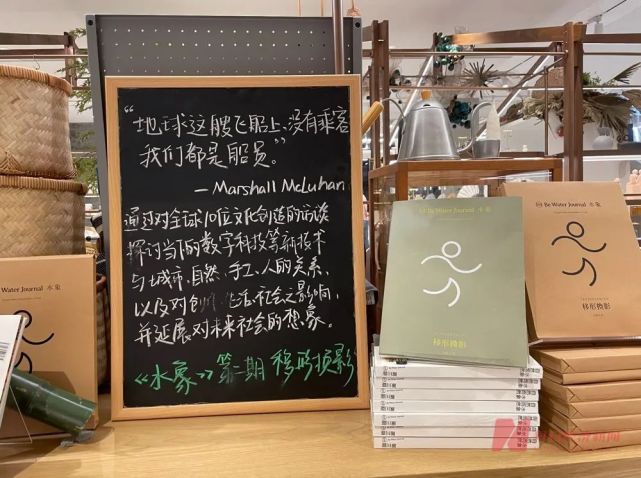 “地球这艘飞船上、没有乘客
我们都是船员。”
— Marshall McLuhan
通过对全球10位文化创造的访谈
探讨当下的数字科技等新技术
与城市、自然、手工、人的关系,
以及对创 、生活、社会之影响,
并延展对未来社会的想象。
《水象》第二期 移形换影
Be Water Journal 水象
移形換影
Be Water Journal 水象
移形換影
Water Journal 水象